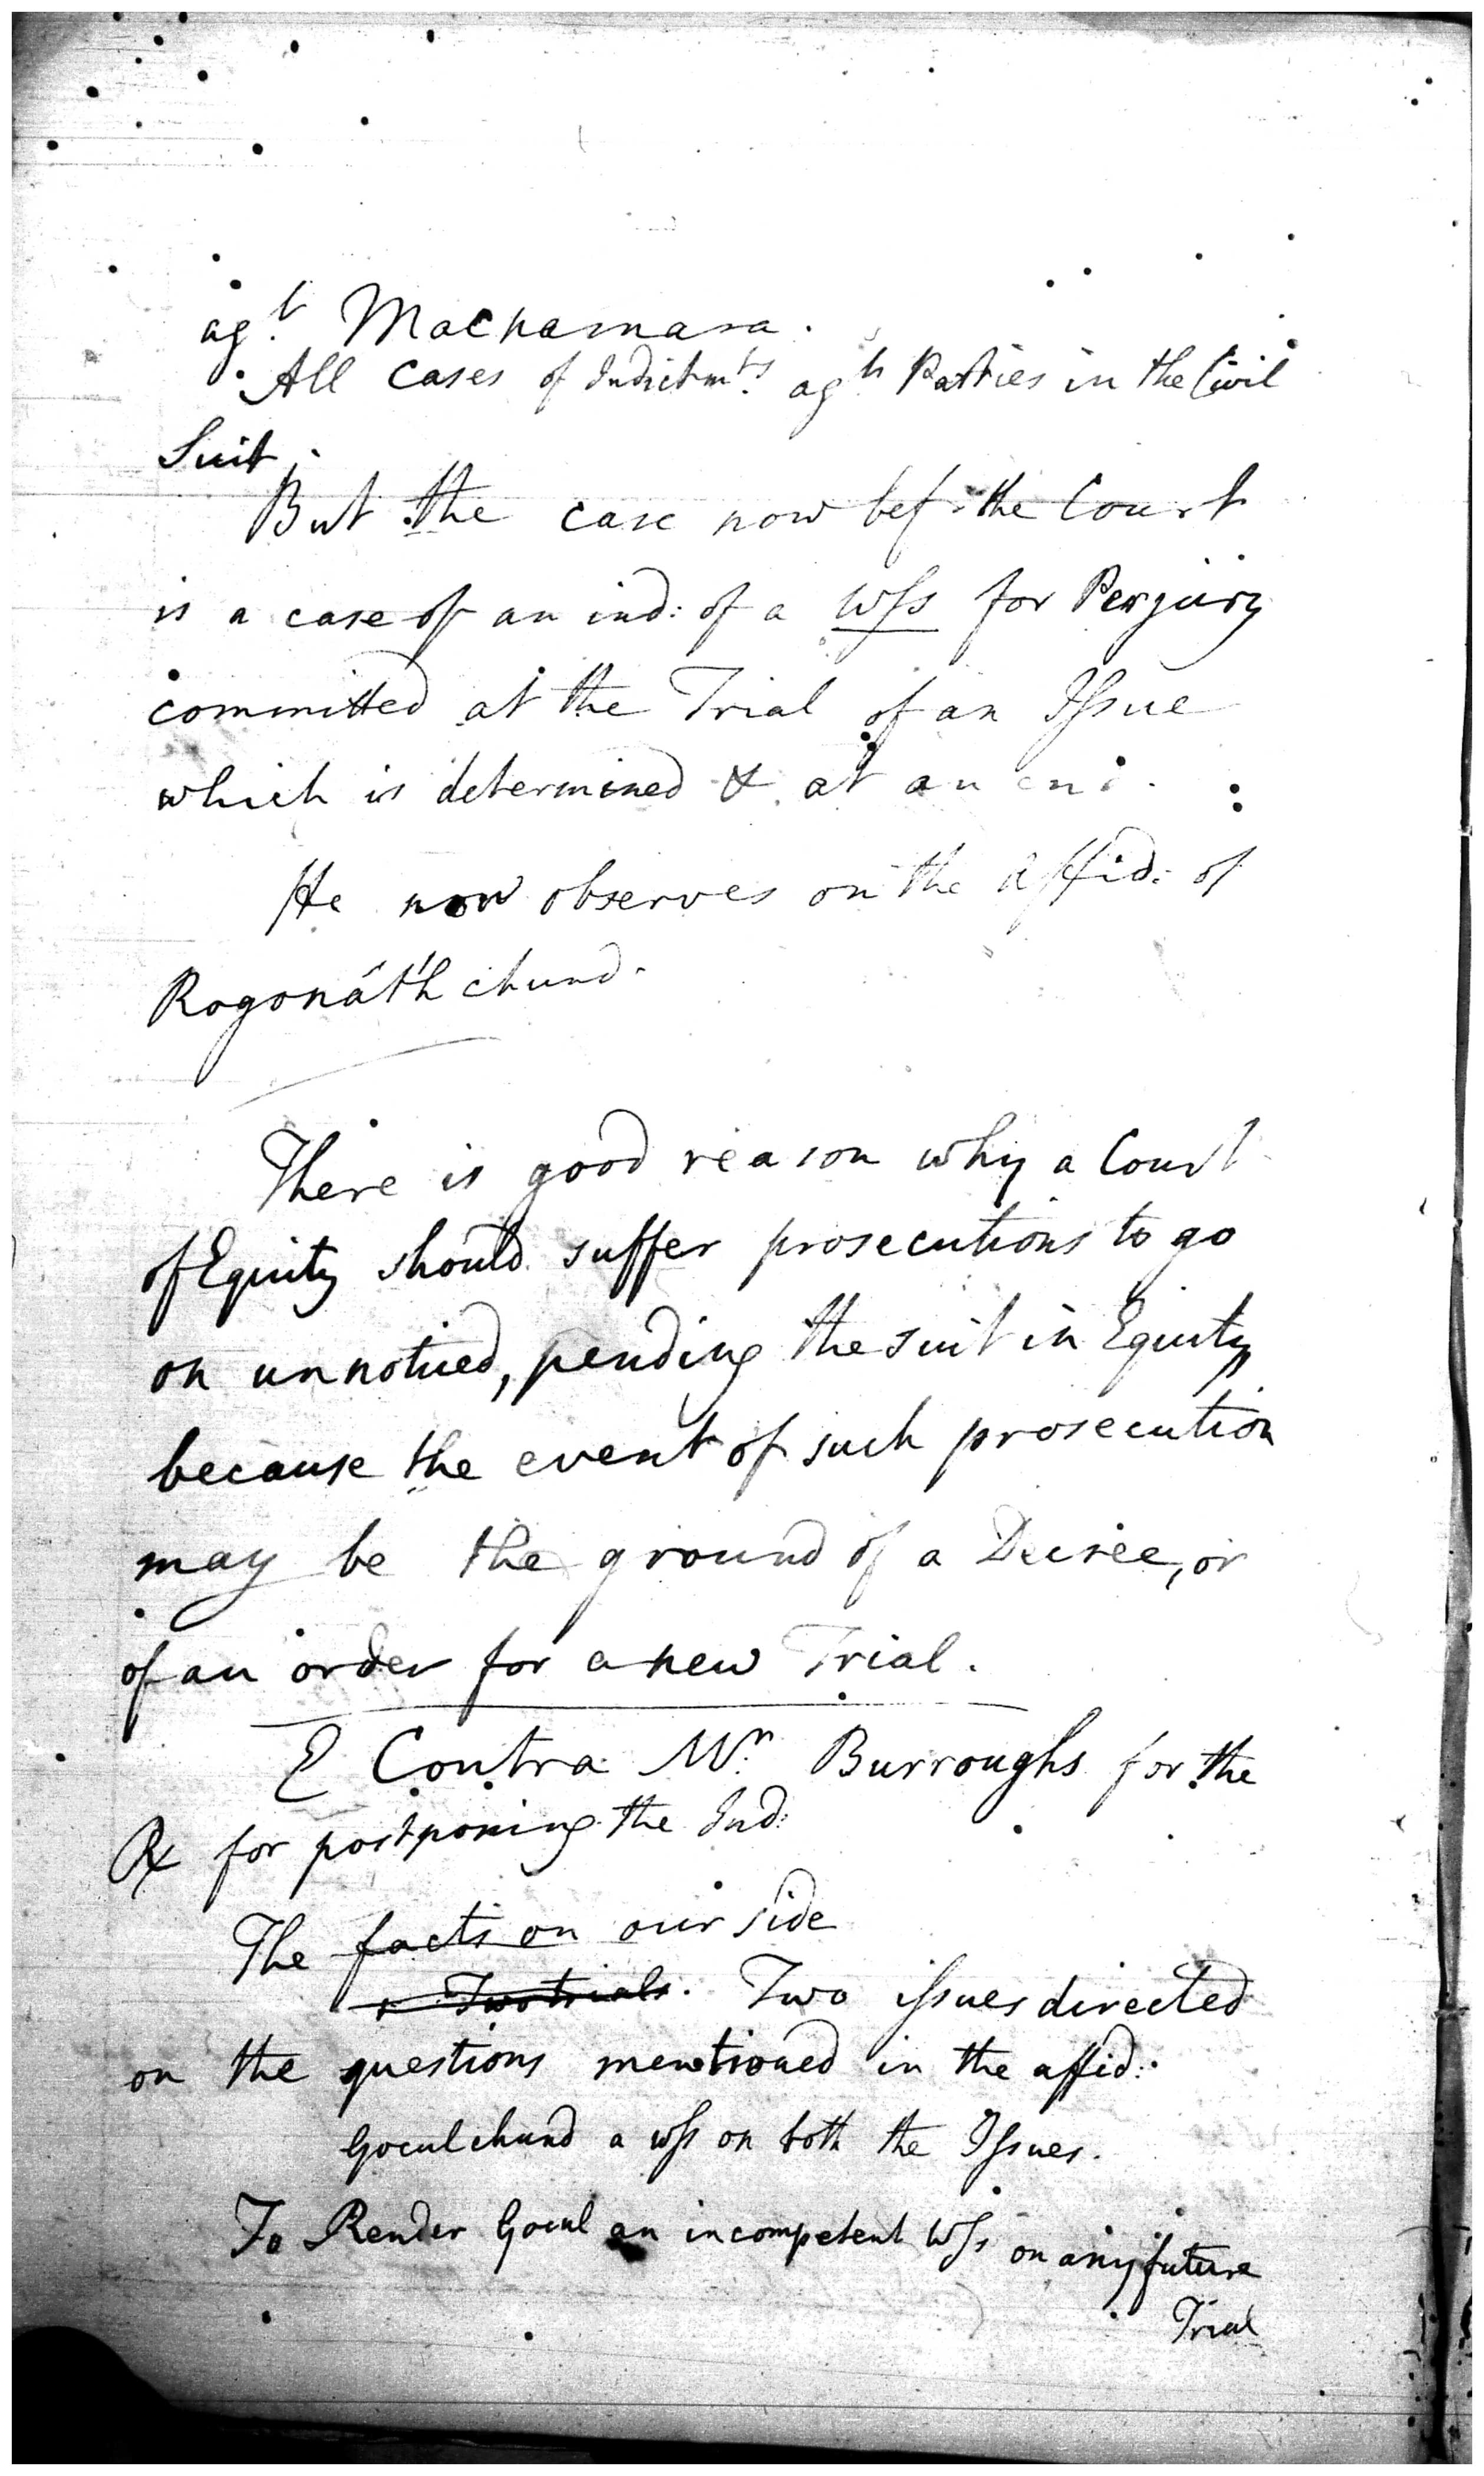 agt. Macnamara.
All Cases of Indictmts. agts Parties in the Civil
Suit.
But the case now bef: the Court
is a case of an ind: of a Wss for Perjury
committed at the Trial of an Issue
which is determined & at an end.
He now observes on the Affid: of
Rogonáth chund.
There is good reason why a Court
of Equity should suffer prosecutions to go
on unnoticed, pending the suit in Equity
because the event of such prosecution
may be the ground of a Decree, or
of an order for a new Trial.
E Contra Mr. Burroughs for the
for postponing the Ind:
The facts on our side
Two trials. Two issues directed
on the questions mentioned in the affid:
Goculchund a wss on both the Issues.
To Render Gocul an incompetent Wss on any future
Trial